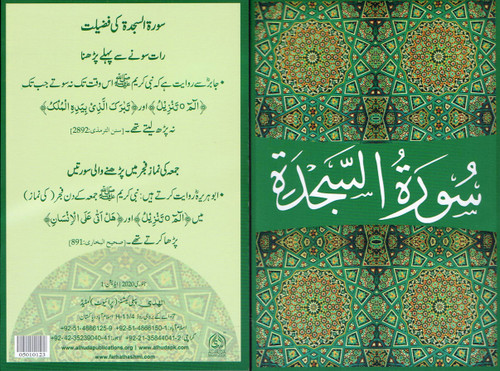 سورۃ السجدۃ کی فضیلت
رات سونے سے پہلے پڑھنا
• جابرؓ سے روایت ہے کہ نبی کریم ﷺ اس وقت تک نہ سوتے جب تک
﴿الٓمّٓ ۝ تَنْزِيْلُ﴾ اور ﴿تَبٰرَكَ الَّذِيْ بِيَدِهِ الْمُلْكُ﴾
نہ پڑھ لیتے تھے۔ [سنن الترمذی: 2892]
جمعہ کی نماز فجر میں پڑھنے والی سورتیں
• ابو ہریرہؓ روایت کرتے ہیں: نبی کریم ﷺ جمعہ کے دن فجر (کی نماز)
میں ﴿الٓمّٓ ۝ تَنْزِيْلُ﴾ اور ﴿هَلْ اَتٰى عَلَى الْاِنْسَانِ﴾
پڑھا کرتے تھے۔ [صحیح البخاری: 891]
2020
+92-51-4866125-9 +92-51-4866150-1
+92-42-35239040-41 +92-21-35844041-2
www.alhudapublications.org www.alhudapk.com
www.farhathashmi.com
05010123
سُورَةُ السَّجْدَة